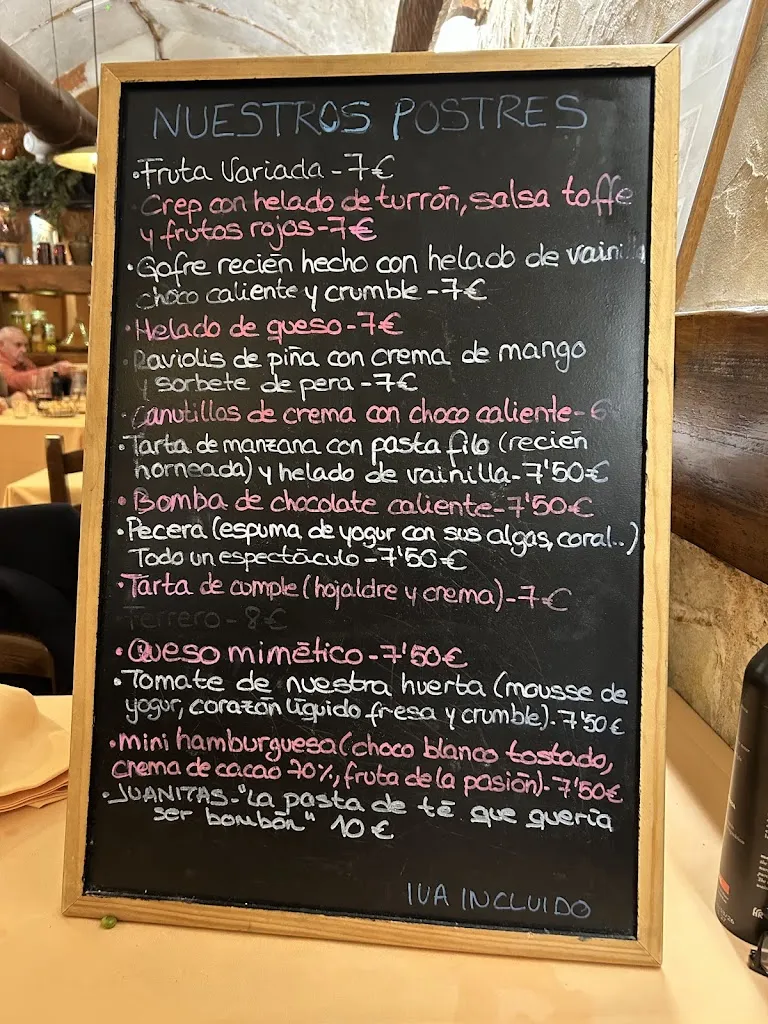 NUESTROS POSTRES
·Fruta Variada-7€
Crep con helado de turrón, salsa toffe
y frutos rojos-7€
·Gofre recién hecho con helado de vainilla
choco caliente y crumble-7€
·Helado de queso-7€
Raviolis de piña con crema de mango
y sorbete de pera-7€
·Canutillos de crema con choco caliente-6
·Tarta de manzana con pasta filo (recién
horneada) y helado de vainilla-7'50€
·Bomba de chocolate caliente-7'50€
·Pecera (espuma de yogur con sus algas, coral..)
Todo un espectáculo-7'50€
·Tarta de cumple (hojaldre y crema)-7€
Ferrero-8€
·Queso mimético-7'50€
·Tomate de nuestra huerta (mousse de
yogur, corazón líquido fresa y crumble)-7'50€
·mini hamburguesa (choco blanco tostado,
crema de cacao 70%, fruta de la pasión)-7'50€
·JUANITAS-"La pasta de té que quería
ser bombón" 10€
IVA INCLUIDO